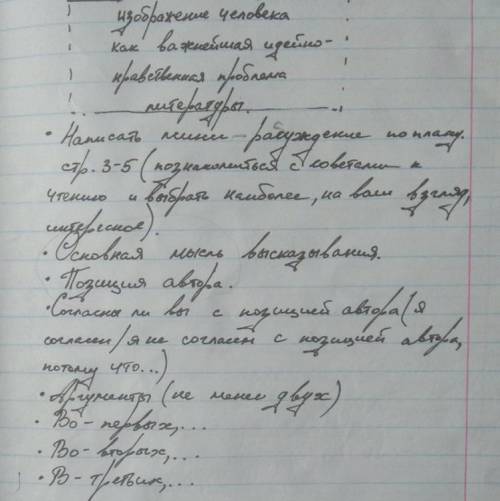 изображение человека
как важнейшая идейно-
нравственная проблема
литературы.
• Написать мини-рассуждение по плану.
стр. 3-5 (познакомиться с советами к
чтению и выбрать наиболее, на ваш взгляд,
интересное).
• Основная мысль высказывания.
• Позиция автора.
• Согласны ли вы с позицией автора (я
согласен/я не согласен с позицией автора,
потому что...)
• Аргументы (не менее двух)
• Во-первых,...
• Во-вторых,...
• В-третьих,...